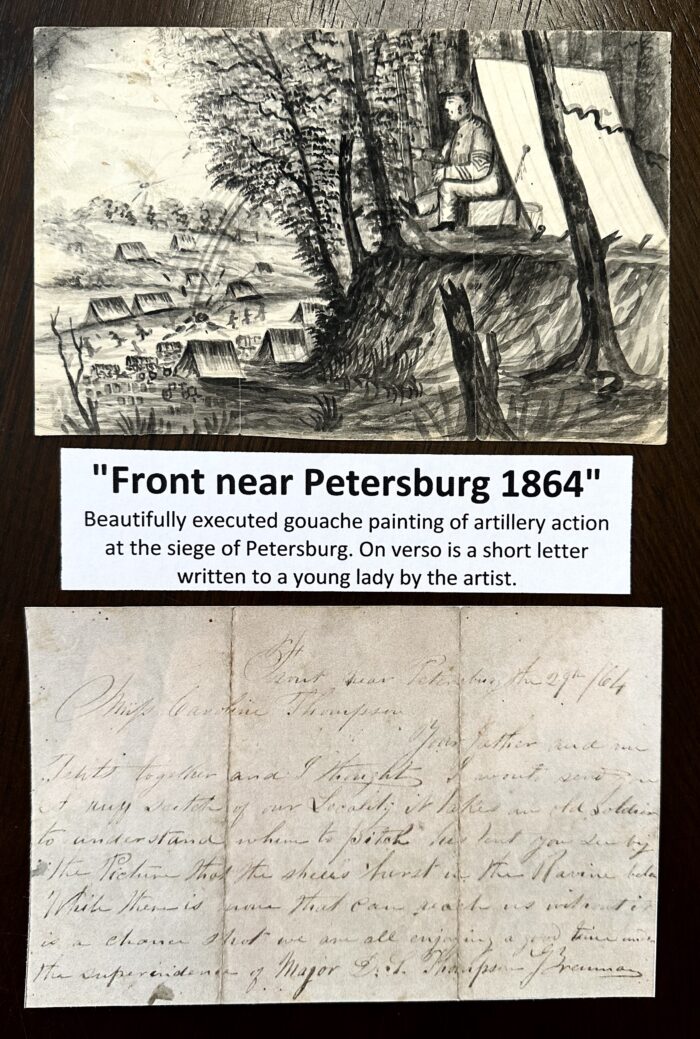 "Front near Petersburg 1864"
Beautifully executed gouache painting of artillery action
at the siege of Petersburg. On verso is a short letter
written to a young lady by the artist.
Front near Petersburg the 29th /64
Miss Caroline Thompson
Your father and me
Tents together and I thought I would send you
a sketch of our Locality it takes an old Soldier
to understand where to pitch his tent you see by
the Picture that the shells burst in the Ravine below
While there is none that can reach us without it
is a chance shot we are all enjoying a good time under
the superindence of Major D. S. Thompson